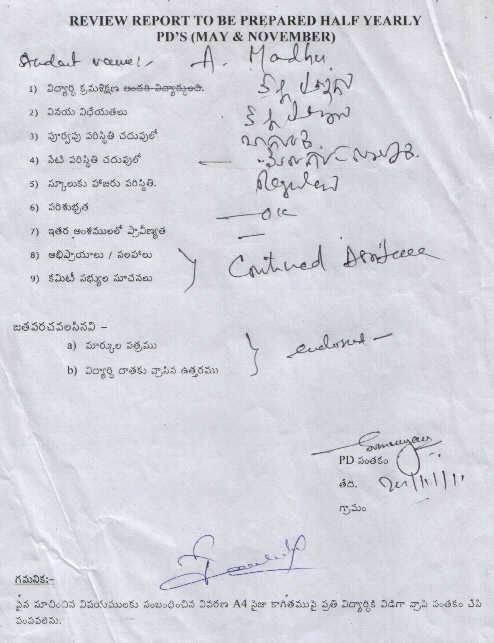 REVIEW REPORT TO BE PREPARED HALF YEARLY
PD'S (MAY & NOVEMBER)
Student name:- A. Madhu
1) విద్యార్థి క్రమశిక్షణ
2) వినయ విధేయతలు
3) పూర్వపు పరిస్థితి చదువులో
4) నేటి పరిస్థితి చదువులో
5) స్కూలుకు హాజరు పరిస్థితి. Regular
6) పరిశుభ్రత - OK
7) ఇతర అంశములలో ప్రావీణ్యత -
8) అభిప్రాయాలు / సలహాలు
9) కమిటీ సభ్యుల సూచనలు
Continued Assistance
జతపరచవలసినవి –
a) మార్కుల పత్రము
b) విద్యార్థి దాతకు వ్రాసిన ఉత్తరము
enclosed -
PD సంతకం
తేది.
గ్రామం
గమనిక:-
పైన సూచించిన విషయములకు సంబంధించిన వివరణ A4 సైజు కాగితముపై ప్రతి విద్యార్థికి విడిగా వ్రాసి సంతకం చేసి
పంపవలెను.